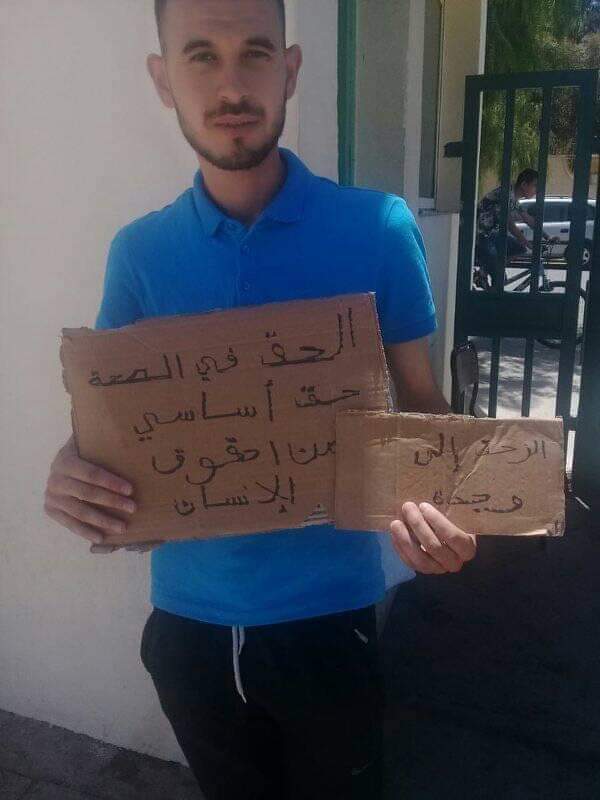 الحق في الصحة
حق أساسي
من احقوق
الإنسان
الرحة إلى
وجدة